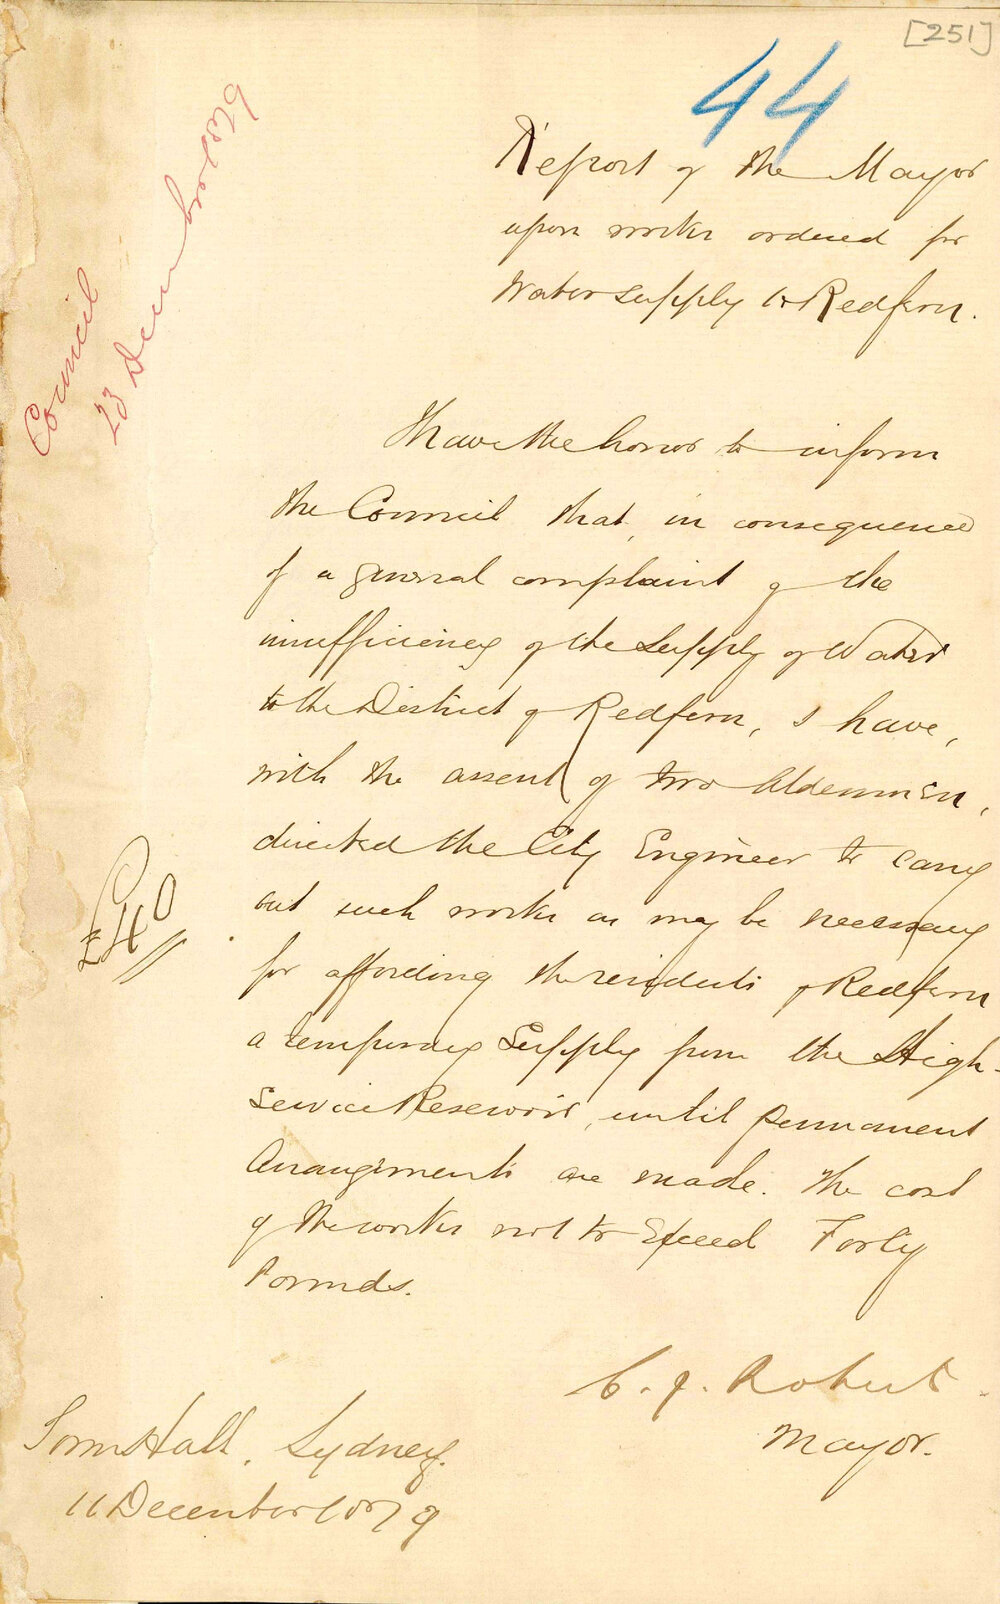 [251]
44
Report of the Mayor
upon works ordered for
Water supply to Redfern.
Council
23 December 1879
I have the honor to inform
the Council that, in consequence
of a general complaint of the
insufficiency of the Supply of Water
to the District of Redfern, I have,
with the assent of two Aldermen,
directed the City Engineer to carry
out such works as may be necessary
for affording the residents of Redfern
a temporary Supply from the High-
Service Reservoir, until permanent
Arrangements are made. The cost
of the works not to Exceed Forty
Pounds.
£40
C. J. Roberts.
Mayor.
Town Hall, Sydney.
11 December 1879